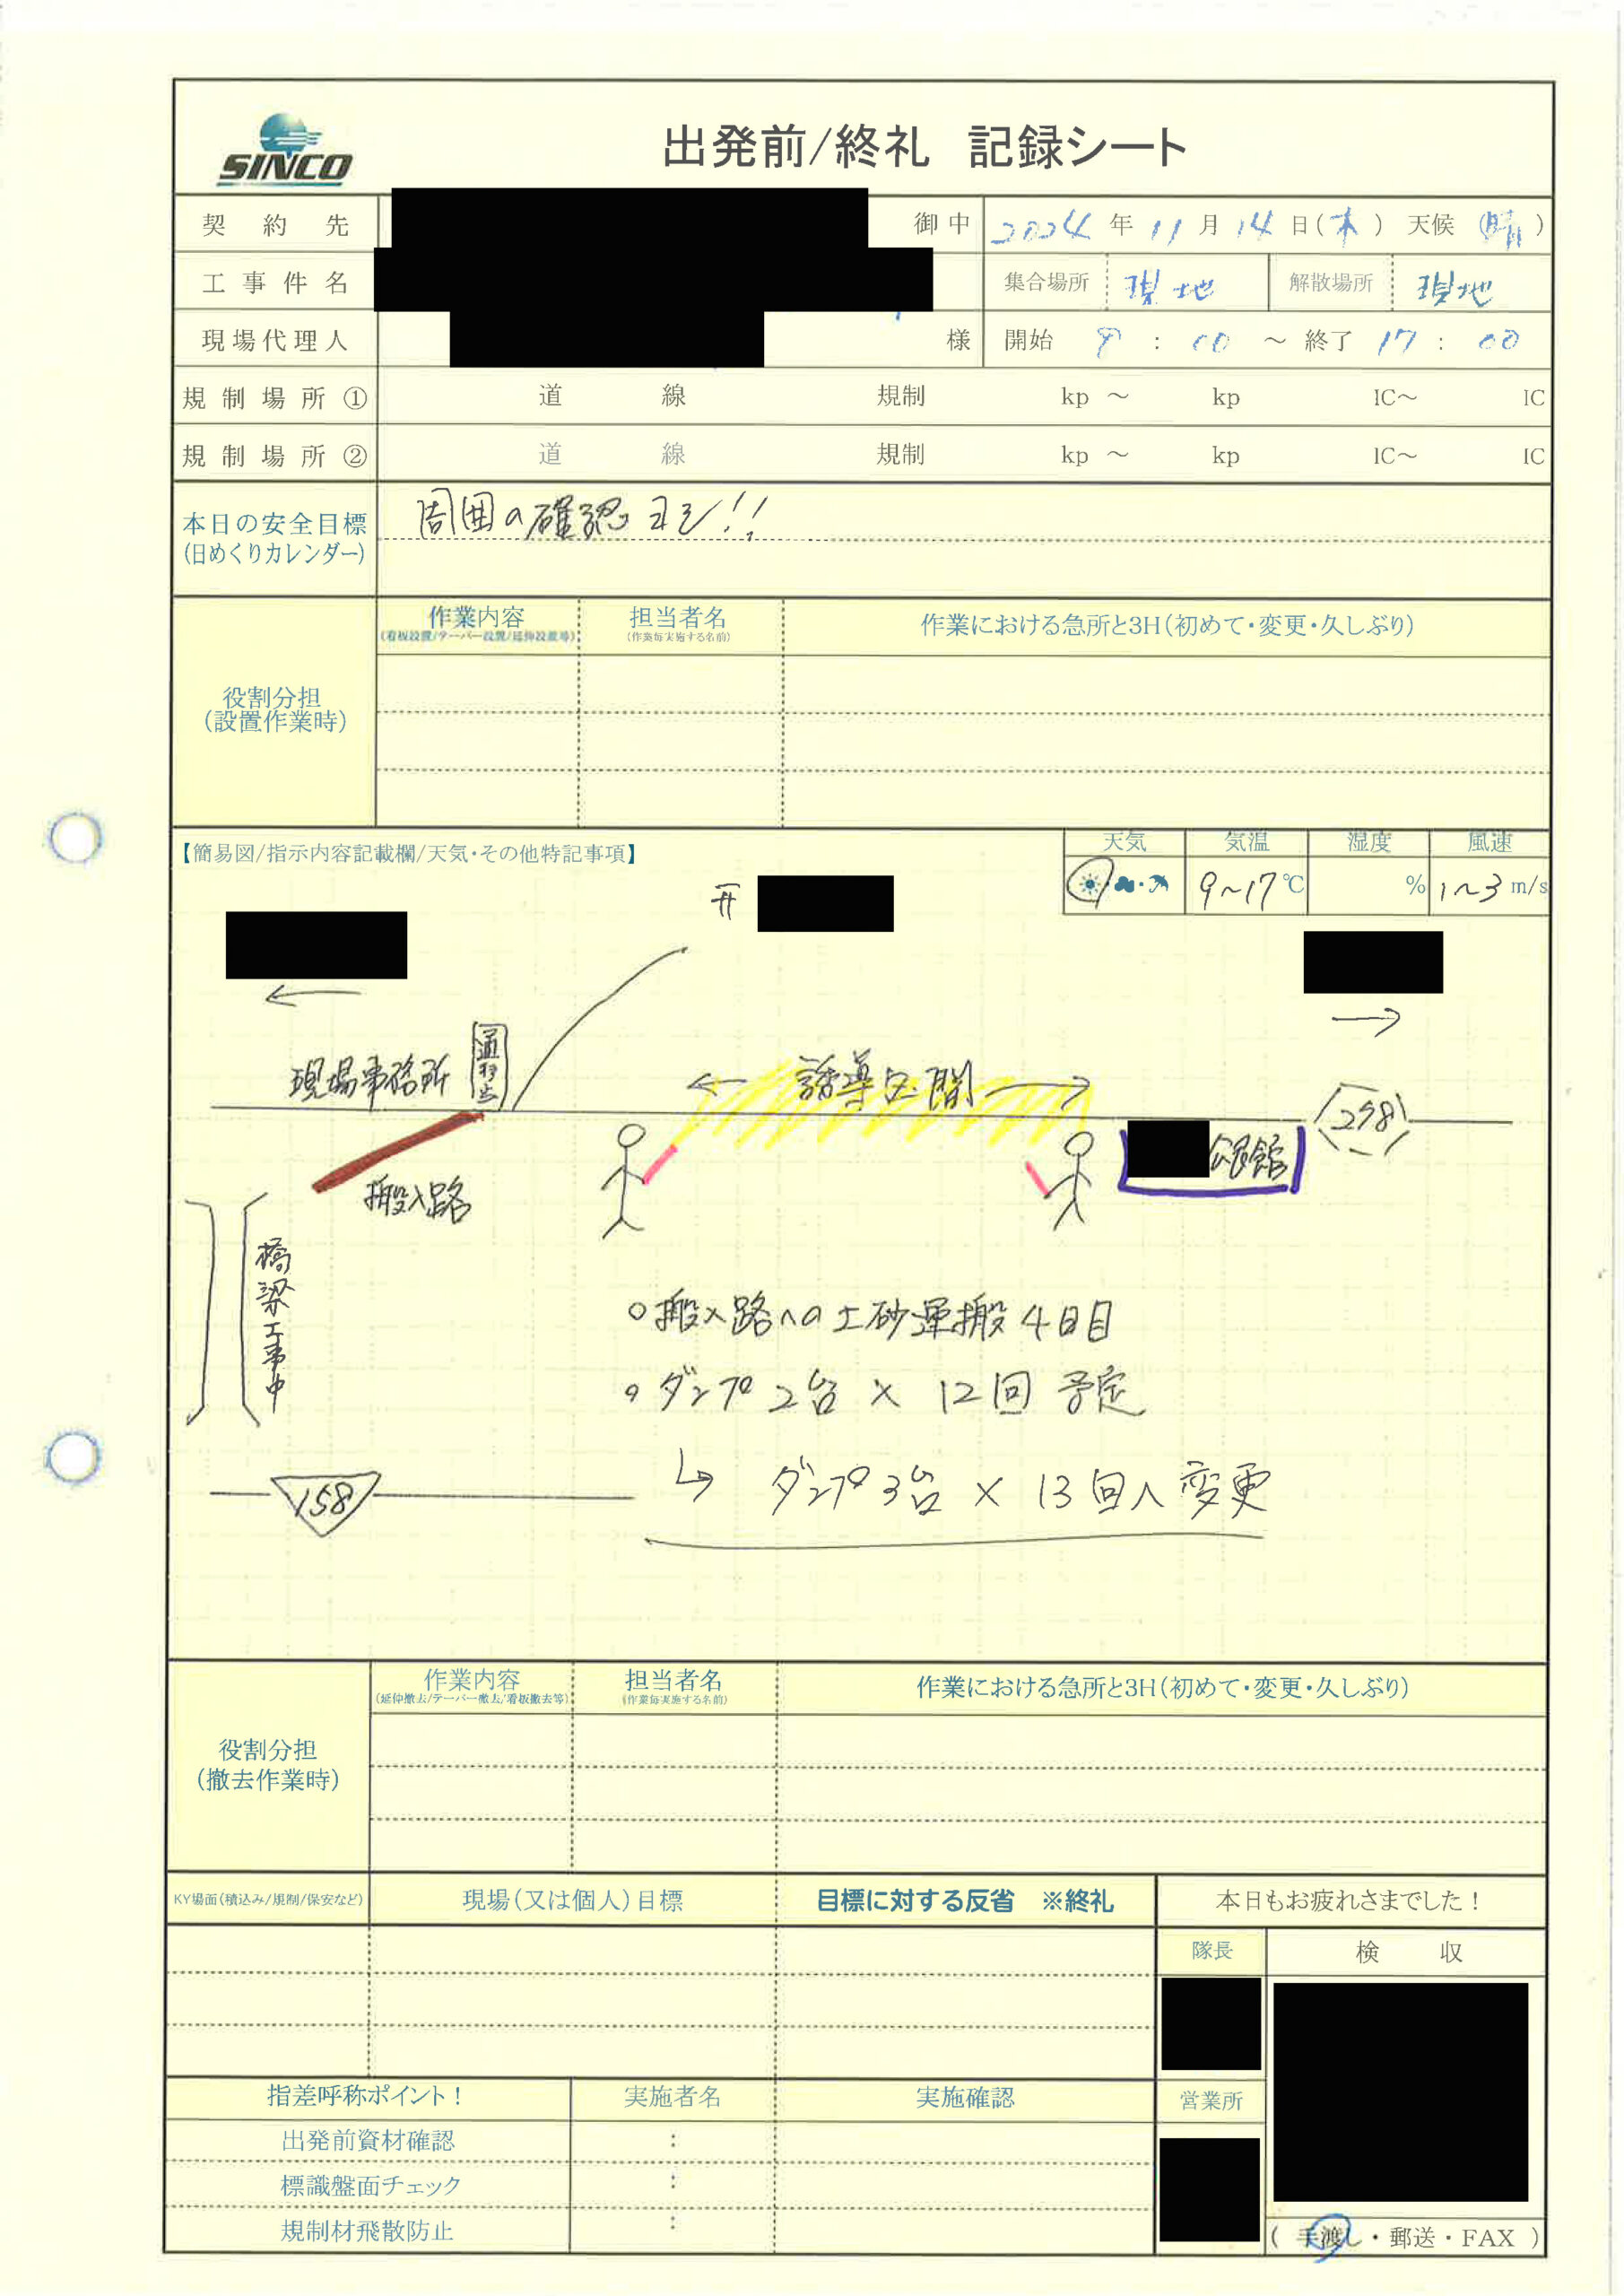 SINCO
出発前/終礼 記録シート
契約先 御中 2024年11月14日(木) 天候(晴)
工事件名 集合場所 現地 解散場所 現地
現場代理人 様 開始 9:00 ～ 終了 17:00
規制場所① 道 線 規制 kp ～ kp IC～ IC
規制場所② 道 線 規制 kp ～ kp IC～ IC
本日の安全目標 周囲の確認ヨシ!!
(日めくりカレンダー)
役割分担
(設置作業時)
作業内容 担当者名 作業における急所と3H(初めて・変更・久しぶり)
(看板設置/テーパー設置/延伸設置等) (作業毎実施する名前)
【簡易図/指示内容記載欄/天気・その他特記事項】
天気 気温 湿度 風速
9～17℃ % 1～3 m/s
至
現場事務所
誘導区間
298
公民館
搬入路
橋梁工事中
○搬入路への土砂運搬4日目
○ダンプ2台×12回予定
↳ ダンプ3台×13回へ変更
158
役割分担
(撤去作業時)
作業内容 担当者名 作業における急所と3H(初めて・変更・久しぶり)
(延伸撤去/テーパー撤去/看板撤去等) (作業毎実施する名前)
KY場面(積込み/規制/保安など) 現場(又は個人)目標 目標に対する反省 ※終礼 本日もお疲れさまでした!
隊長 検収
指差呼称ポイント! 実施者名 実施確認 営業所
出発前資材確認 :
標識盤面チェック :
規制材飛散防止 :
(手渡し・郵送・FAX)